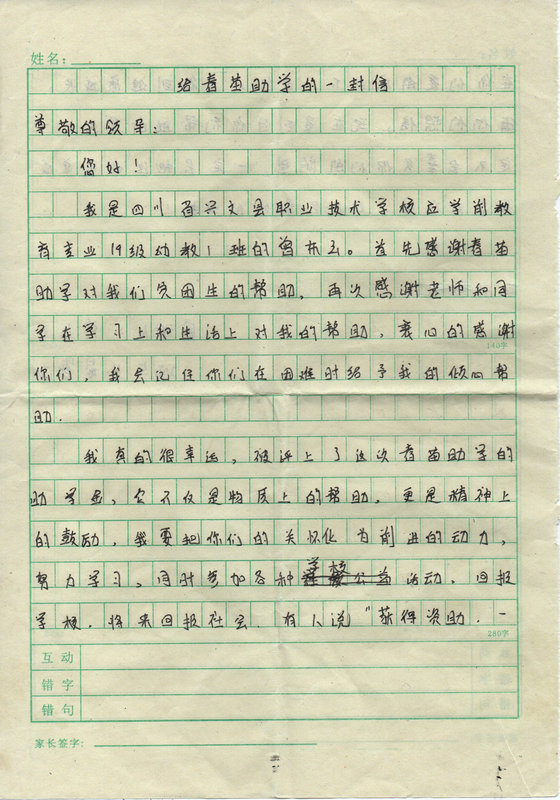 姓名：
给春苗助学的一封信
尊敬的领导：
您好！
我是四川省兴文县职业技术学校应学前教
育专业19级幼教1班的曾
首先感谢春苗
助学对我们贫困生的帮助，再次感谢老师和同
学在学习上和生活上对我的帮助，衷心的感谢
140字
你们，我会记住你们在困难时给予我的倾心帮
助．
我真的很幸运，被评上了这次春苗助学的
助学金，它不仅是物质上的帮助，更是精神上
的鼓励，我要把你们的关怀化为前进的动力，
学校
努力学习，同时参加各种
活动，回报
学校．将来回报社会．有人说“获得资助．一
280字
互动
错字
错句
家长签字：